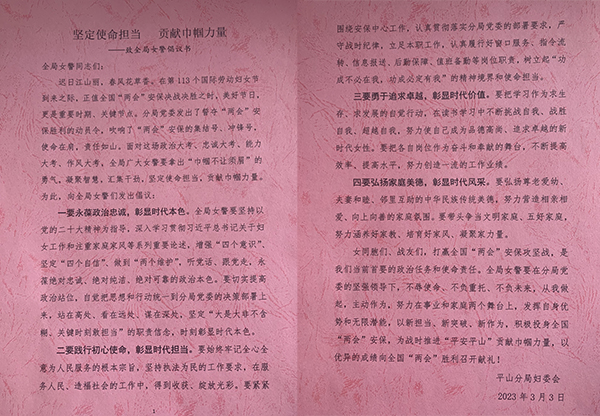 坚定使命担当　贡献巾帼力量
——致全局女警倡议书
全局女警同志们：
迟日江山丽，春风花草香。在第 113 个国际劳动妇女节
到来之际，正值全国“两会”安保决战决胜之时，美好节日，
更是重要时期、关键节点。分局党委发出了誓夺“两会”安
保胜利的动员令，吹响了“两会”安保的集结号、冲锋号，
使命在肩，责任如山。面对这场政治大考、忠诚大考、能力
大考、作风大考，全局广大女警要拿出“巾帼不让须眉”的
勇气，凝聚智慧，汇集干劲，坚定使命担当，贡献巾帼力量。
为此，向全局女警们发出倡议：
一要永葆政治忠诚，彰显时代本色。全局女警要坚持以
党的二十大精神为指导，深入学习贯彻习近平总书记关于妇
女工作和注重家庭家风等系列重要论述，增强“四个意识”、
坚定“四个自信”、做到“两个维护”，听党话、跟党走，永
葆绝对忠诚、绝对纯洁、绝对可靠的政治本色。要切实提高
政治站位，自觉把思想和行动统一到分局党委的决策部署上
来，站在高处、看在远处、谋在深处，坚定“大是大非不含
糊、关键时刻敢担当”的职责信念，时刻彰显时代本色。
二要践行初心使命，彰显时代担当。要始终牢记全心全
意为人民服务的根本宗旨，坚持执法为民的工作要求，在服
务人民、造福社会的工作中，得到收获、绽放光彩。要紧紧
1
围绕安保中心工作，认真贯彻落实分局党委的部署要求，严
守战时纪律，立足本职工作，认真履行好窗口服务、指令流
转、信息报送、后勤保障、值班备勤等岗位职责，树立起“功
成不必在我，功成必定有我”的精神境界和使命担当。
三要勇于追求卓越，彰显时代价值。要把学习作为求生
存、求发展的自觉行动，在读书学习中不断挑战自我、战胜
自我、超越自我，努力使自己成为品德高尚、追求卓越的新
时代女性。要把各自岗位作为奋斗和奉献的舞台，不断提高
效率、提高水平，努力创造一流的工作业绩。
四要弘扬家庭美德，彰显时代风采。要弘扬尊老爱幼、
夫妻和睦、邻里互助的中华民族传统美德，努力营造相亲相
爱、向上向善的家庭氛围。要带头争当文明家庭、五好家庭，
努力涵养好家教、培育好家风、凝聚家力量。
女同胞们、战友们，打赢全国“两会”安保攻坚战，是
我们当前首要的政治任务和使命责任。全局女警要在分局党
委的坚强领导下，不辱使命、不负重托、不负未来，从我做
起，主动作为，努力在事业和家庭两个舞台上，发挥自身优
势和无限潜能，以新担当、新突破、新作为，积极投身全国
“两会”安保，为战时推进“平安平山”贡献巾帼力量，以
优异的成绩向全国“两会”胜利召开献礼！
平山分局妇委会
2023 年 3 月 3 日